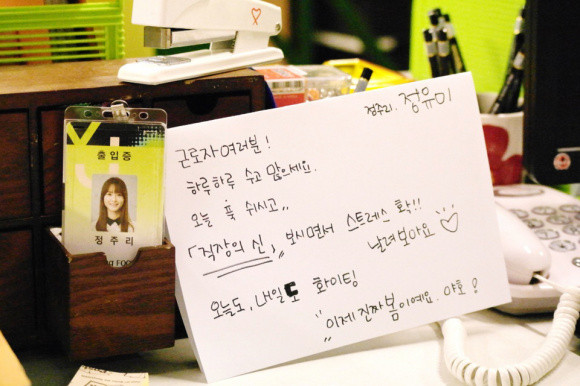 정주리. 정유미
근로자 여러분!
하루하루 수고 많으세요.
오늘 푹 쉬시고..
「직장의 신」 보시면서 스트레스 확!!
날려보아요
오늘도, 내일도 화이팅!
"이제 진짜 봄이예요. 야호!
출입증
정주리
FOO